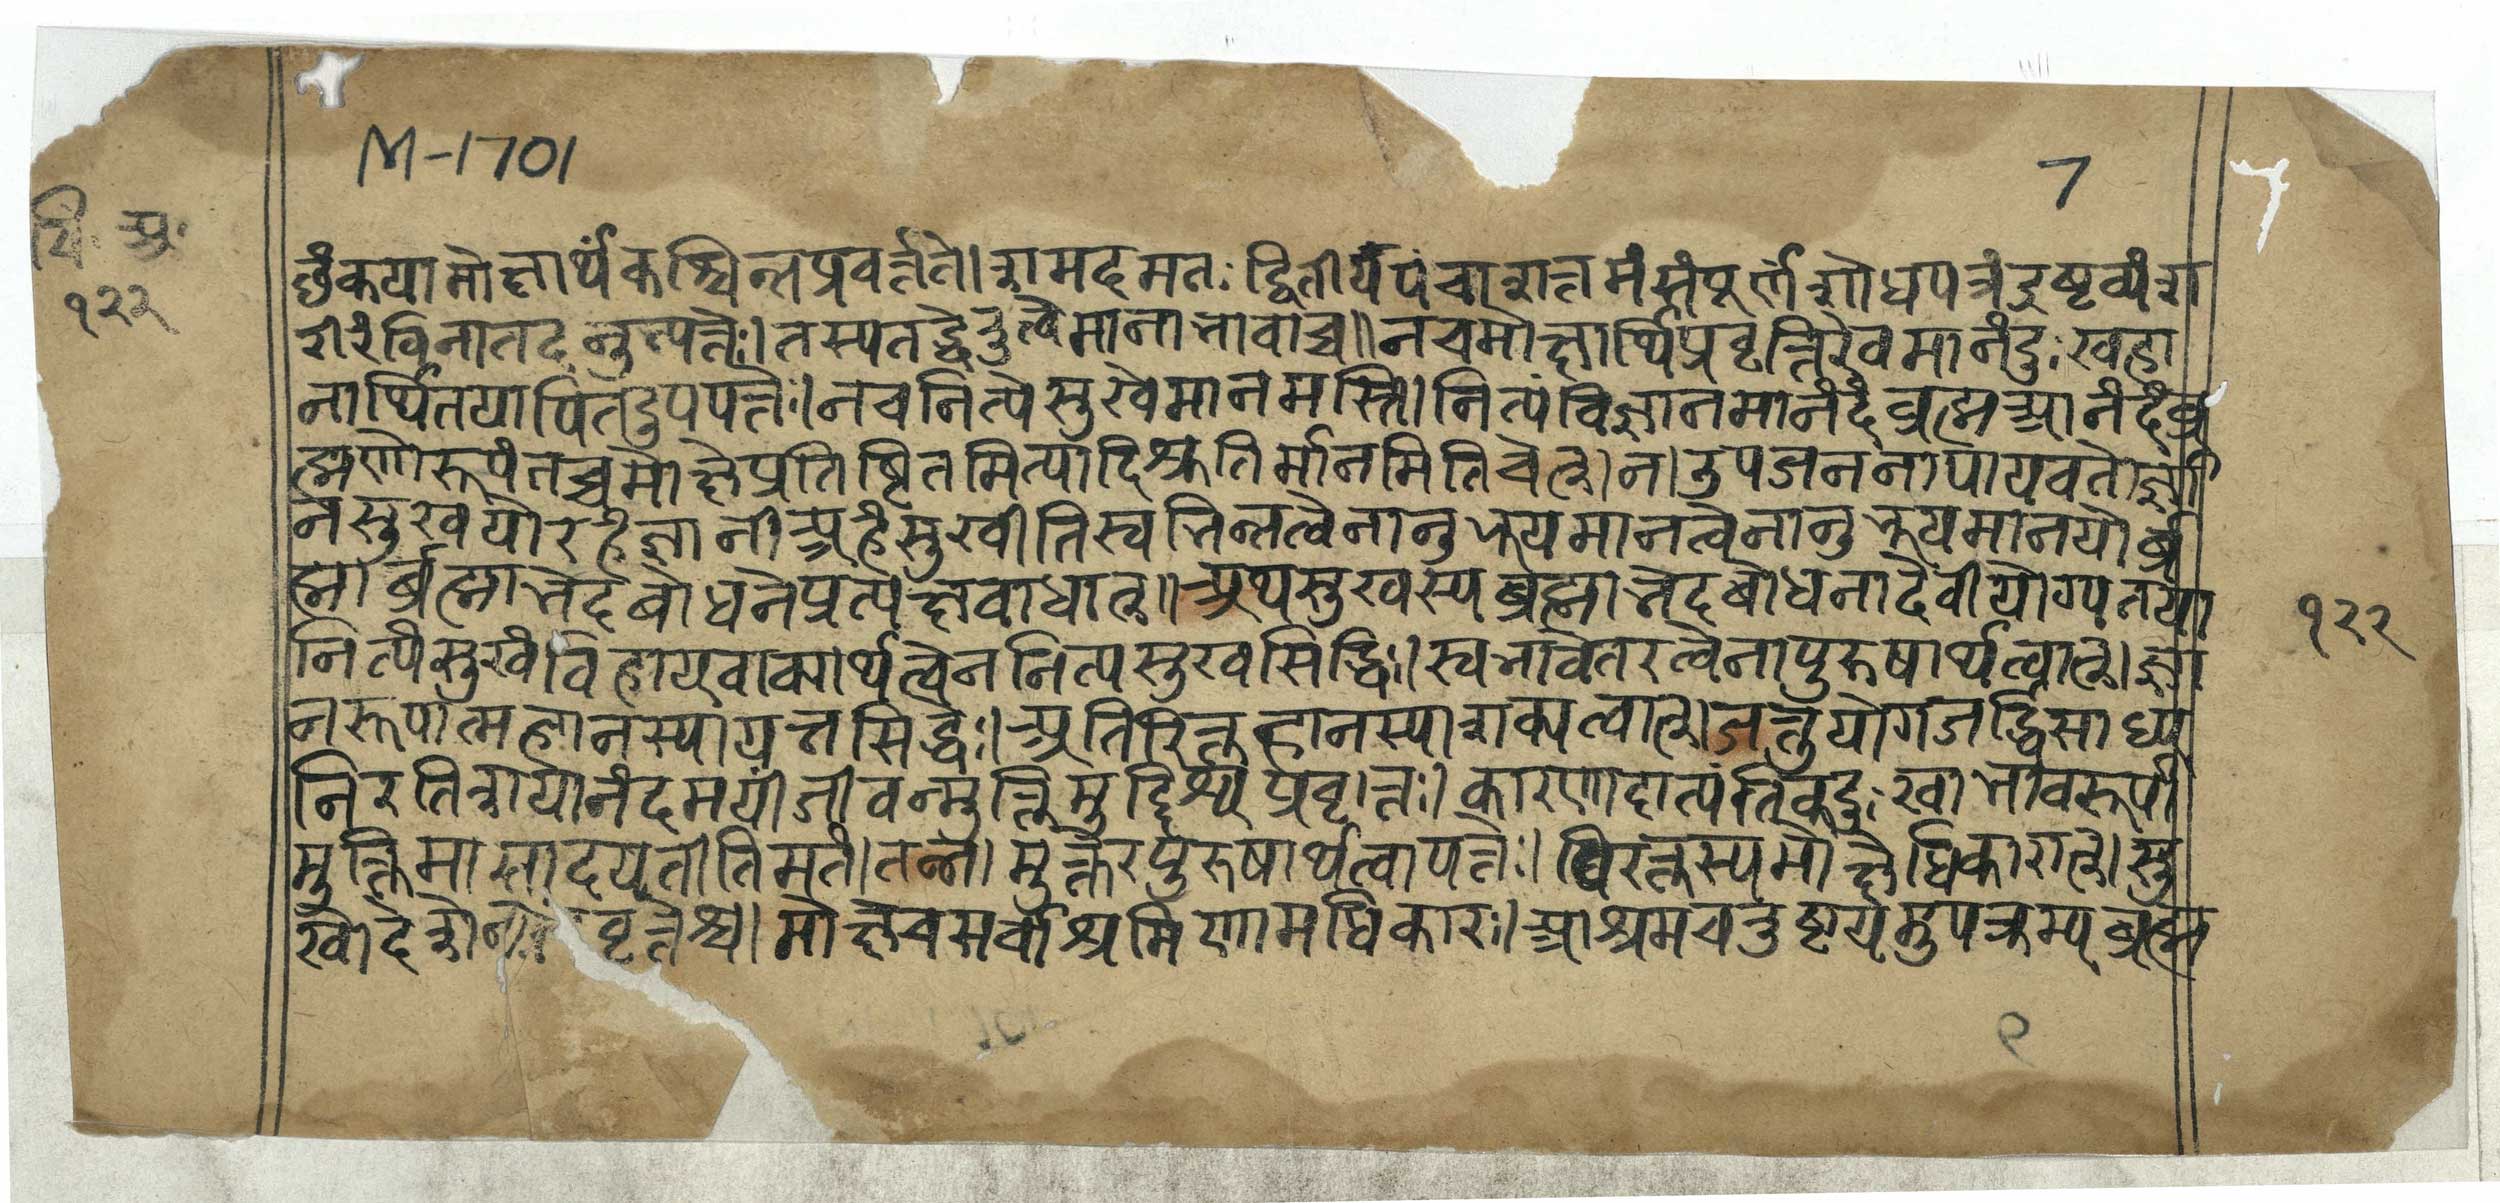 M-1701
7
चि. अ.
१२२
शंकयामोक्षार्थं कश्चिन्नप्रवर्त्तते। शमदमत: द्वितीयंपंचाशत्तमंसंपूर्णंशोधपत्रंद्रष्टव्यंश
रीरंविनातदनुत्पत्तेः। तस्यतद्धेतुत्वेमानाभावाच्च॥ नचमोक्षार्थिप्रवृत्तिरेवमानंदुःखहा
नार्थितयापितदुपपत्तेः। नचनित्येसुखेमानमस्ति। नित्यंविज्ञानमानंदंब्रह्मआनंदंब्र
ह्मणोरूपंतच्चमोक्षेप्रतिष्ठितमित्यादिश्रुतिर्मानमितिचेत्। न। उपजननापायवतोर्ज्ञा
नसुखयोरहंज्ञानीअहंसुखीतिस्वभिन्नत्वेनानुभूयमानत्वेनानुभूयमानयोर्ब्र
ह्माब्रह्माभेदबोधनेप्रत्यक्षबाधात्॥ अथसुखस्यब्रह्माभेदबोधनादेवीयोग्यतया
नित्यंसुखंविहायवाक्यार्थत्वेननित्यसुखसिद्धिः। स्वभावेतरत्वेनापुरुषार्थत्वात्। ज्ञा
नरूपात्महानस्यायत्तसिद्धेः। अतिरिक्तहानस्याशक्यत्वात्। जन्तुयोगजर्द्धिसाध्य
निरतिशयानंदमयींजीवन्मुक्तिमुद्दिश्यप्रवृत्तः। कारणादात्यंतिकदुःखाभावरूपां
मुक्तिमासादयतीतिमतं। तन्न। मुक्तेरपुरुषार्थत्वापत्तेः। विरक्तस्यमोक्षेधिकारात्। सु
खोद्देशे वृत्तेश्च। मोक्षेचसर्वाश्रमिणामधिकारः। आश्रमचतुष्टयमुपक्रम्यब्रह्म
१२२
९